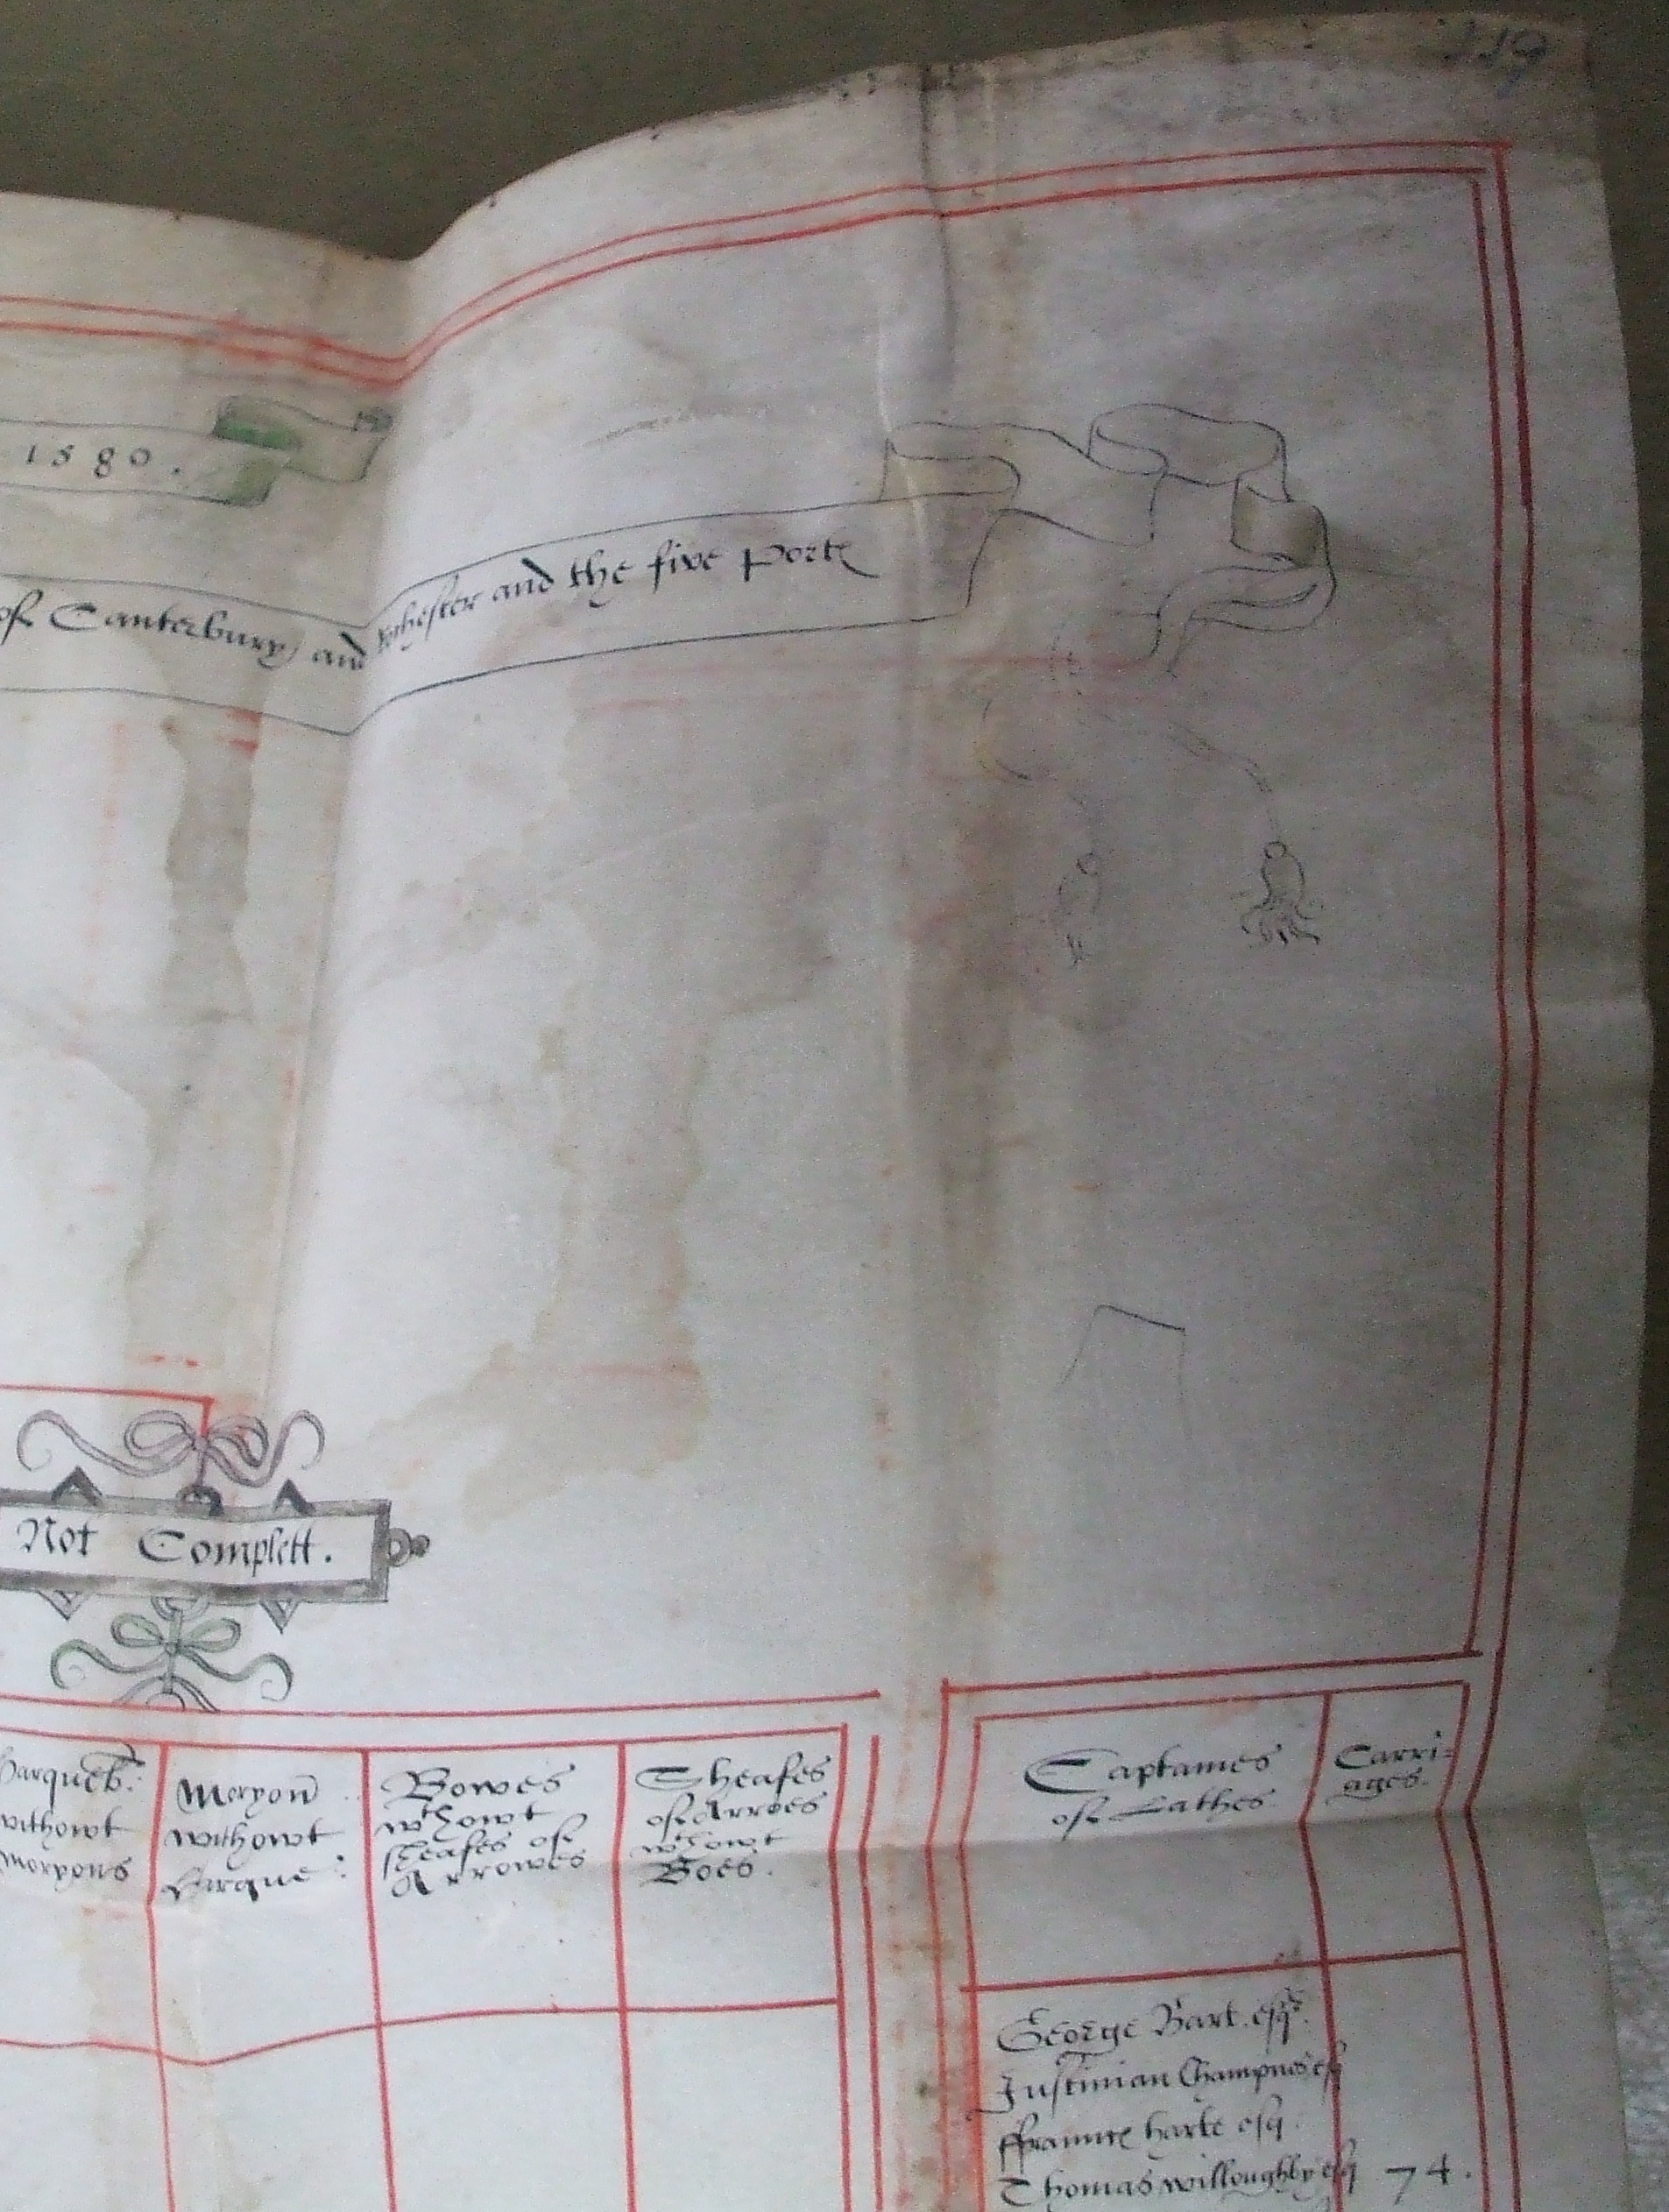 119
1580.
of Canterbury and Rochester and the five Portes
Not Complett.
withowt
moryons
Moryon
withowt
Harque:
Bowes
wthowt
sheafes of
Arrowes
Sheafes
of Arroes
wthowt
Boes.
Captaines
of Lathes
Carri=
ages.
George Bart. esq.
Justinian Champnes esq
harte esq.
Thomas willoughby esq 74.